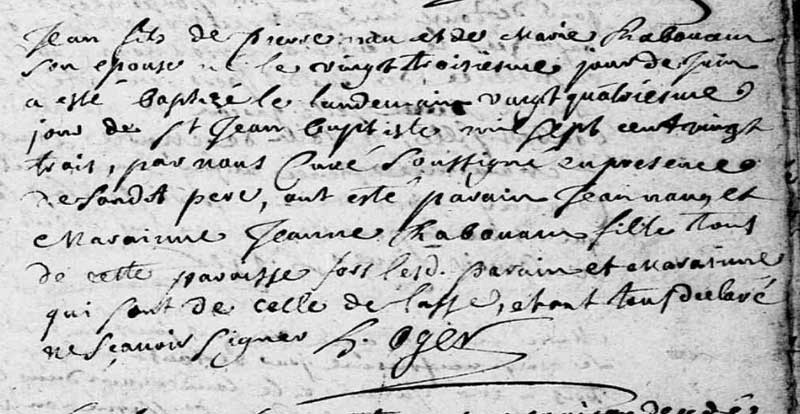 Jean fils de pierre nau et de Marie Rabouam
son epouse né le vingt troisiesme jour de Juin
a esté baptizé le landemain vingt quatriesme
jour de St Jean baptiste mil sept cent vingt
trois, par nous Curé Soussigné en presence
de sondt pere, ont esté parain Jean nau et
Marainne Jeanne Rabouam fille tous
de cette paroisse fors lesd. parain et Marainne
qui sont de celle de lassé, et ont tous declaré
ne sçavoir signer h. ogér